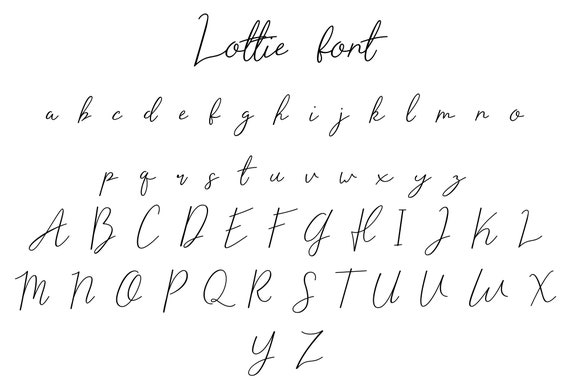 Lottie font
a b c d e f g h i j k l m n o
p q r s t u v w x y z
A B C D E F G H I J K L
M N O P Q R S T U V W X
Y Z